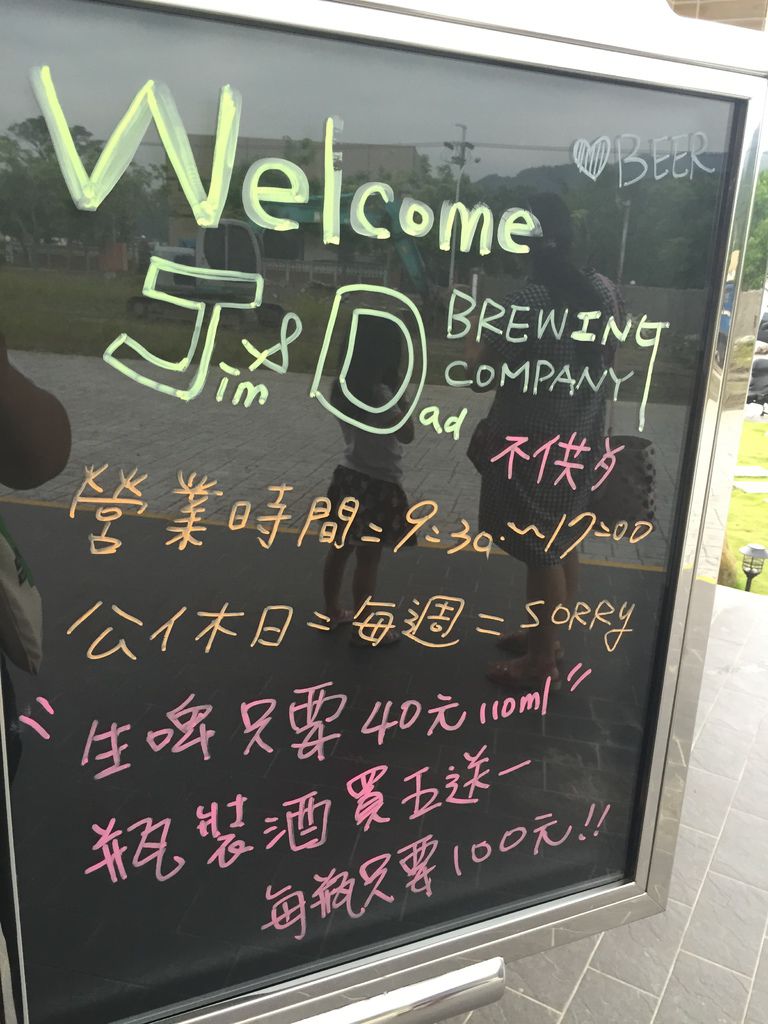 Welcome
♡ BEER
Jim & Dad BREWING COMPANY
不供歺
營業時間=9:30~17:00
公休日=每週二 SORRY
"生啤只要40元110ml"
瓶裝酒買五送一
每瓶只要100元!!